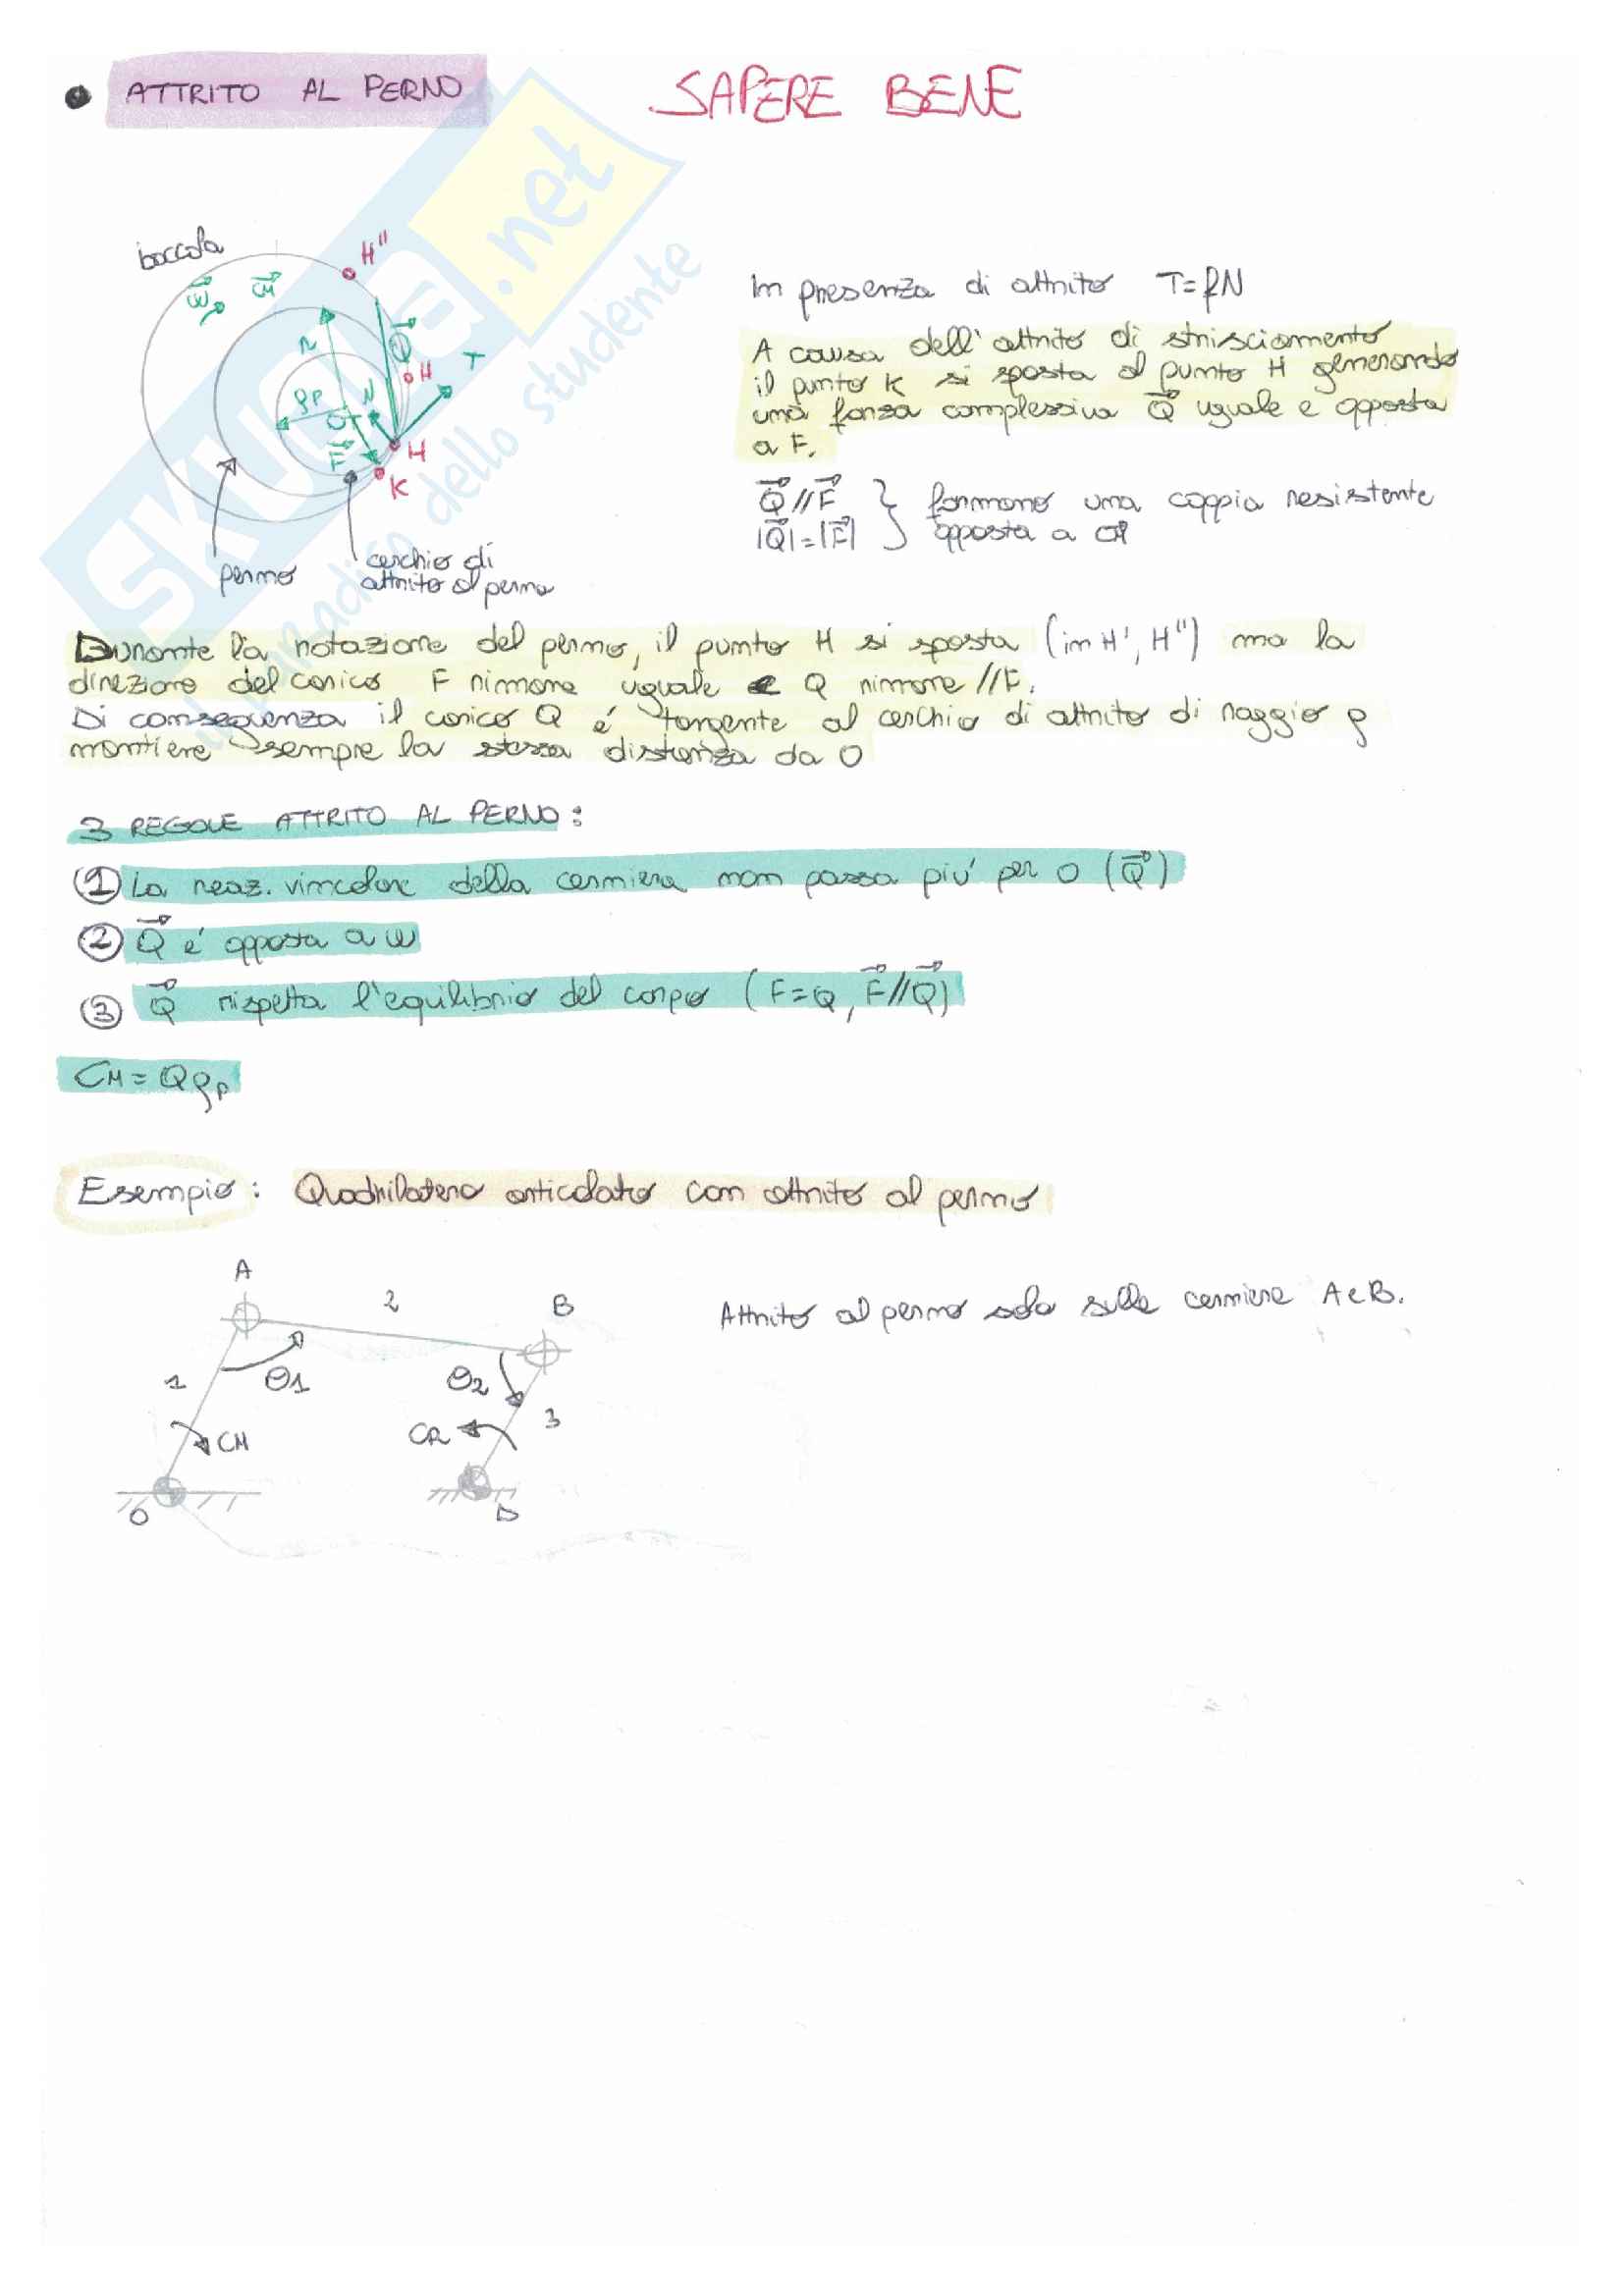 ATTRITO AL PERNO
SAPERE BENE
SKUOLA.net
il paradiso dello studente
boccola
H"
ω
CM
R
Q
T
H
ρP
N
O
F
H
K
perno
cerchio di
attrito al perno
In presenza di attrito T=fN
A causa dell'attrito di strisciamento
il punto K si sposta al punto H generando
una forza complessiva Q uguale e opposta
a F.
Q//F
|Q|=|F|
formano una coppia resistente
opposta a CM
Durante la rotazione del perno, il punto H si sposta (in H', H") ma la
direzione del carico F rimane uguale e Q rimane //F.
Di conseguenza il carico Q é tangente al cerchio di attrito di raggio ρ
mantiere sempre la stessa distanza da O
3 REGOLE ATTRITO AL PERNO:
① La reaz. vincolare della cerniera non passa piu' per O (Q)
② Q é opposta a ω
③ Q rispetta l'equilibrio del corpo (F=Q, F//Q)
CM=QρP
Esempio: Quadrilatero articolato con attrito al perno
A
2
B
Attrito al perno solo sulle cerniere A e B.
1
θ1
θ2
3
CM
CR
O
D